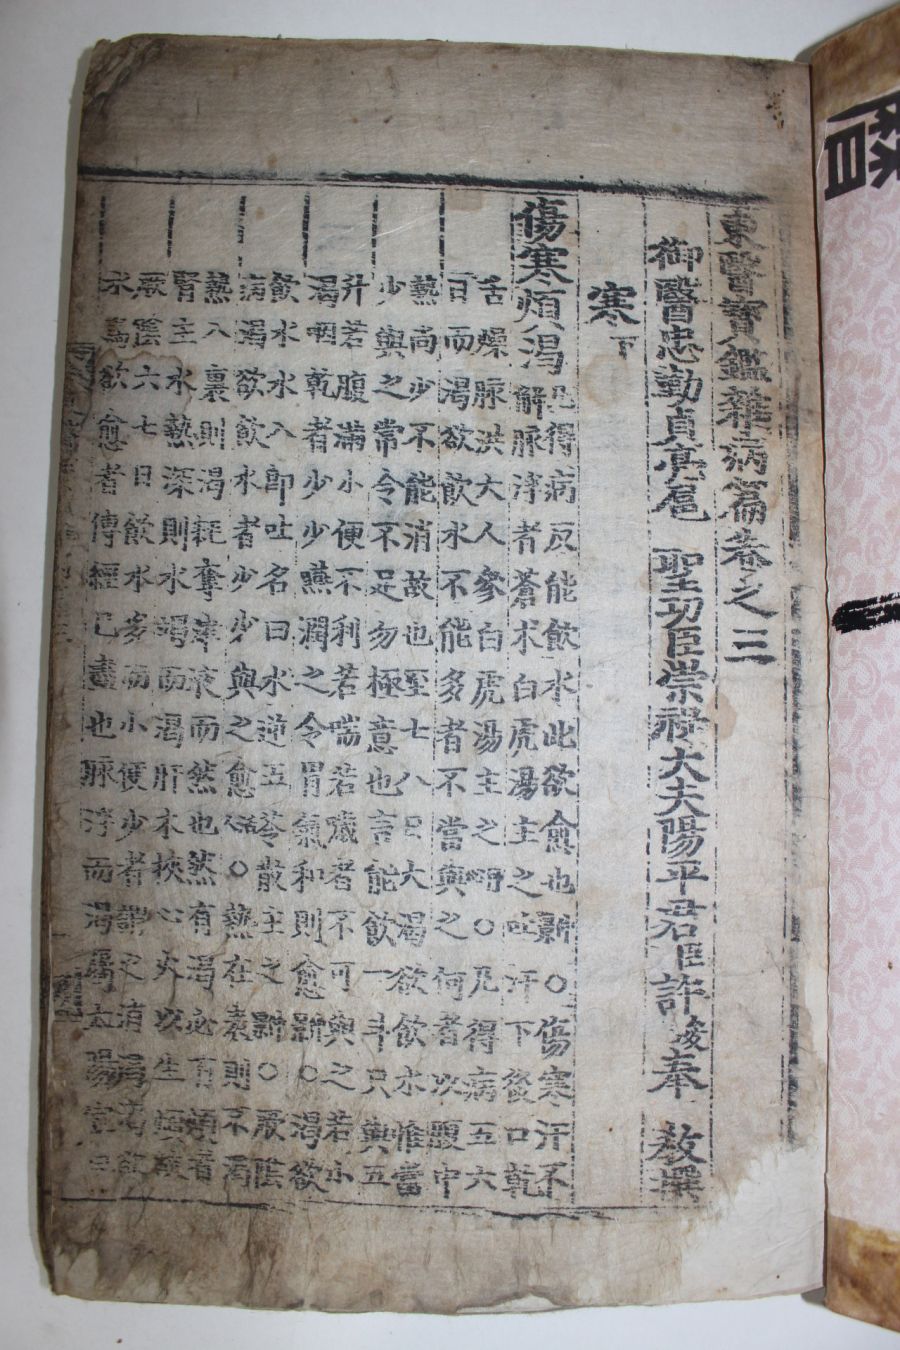 東醫寶鑑雜病篇卷之三
御醫忠勤貞亮扈 聖功臣崇祿大夫陽平君臣許浚奉 敎撰
寒下
傷寒煩渴
凡得病反能飮水此欲愈也新○傷寒汗不
解脉浮者蒼朮白虎湯主之 吐汗下後口乾
舌燥脉洪大人參白虎湯主之明○乃得病五六
日而渴欲飮水不能多者不當與之何者以腹中
熱尙少不能消故也至七八日大渴欲飮水惟當
少與之常令不足勿極意也言能飮一斗只與五
升若腹滿小便不利若喘若噦者不可與之若小
渴咽乾者少少嚥潤之令胃氣和則愈新○渴欲
飮水水入卽吐名曰水逆五苓散主之新○厥陰
病渴欲飮水者少少與之愈活人○熱在表則不渴
熱入裏則渴耗奪津液而然也然有渴必有煩者
腎主水熱深則水竭而渴肝木挾心火以生煩故
厥陰六七日飮水多而小便少者謂之消渴渴欲
水爲欲愈者傳經已盡也脉浮而渴屬太陽